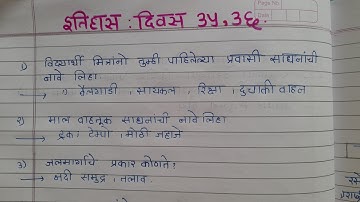 इतिहास : दिवस ३५,३६.
१) विद्यार्थी मित्रांनो तुम्ही पाहिलेल्या प्रवासी साधनांची
नावे लिहा.
→ बैलगाडी , सायकल , रिक्षा , दुचाकी वाहन
२) माल वाहतूक साधनांची नावे लिहा
→ ट्रक, टेम्पो , मोठी जहाजे
३) जलमार्गाचे प्रकार कोणते?
→ नदी समुद्र , तलाव.
Page No.